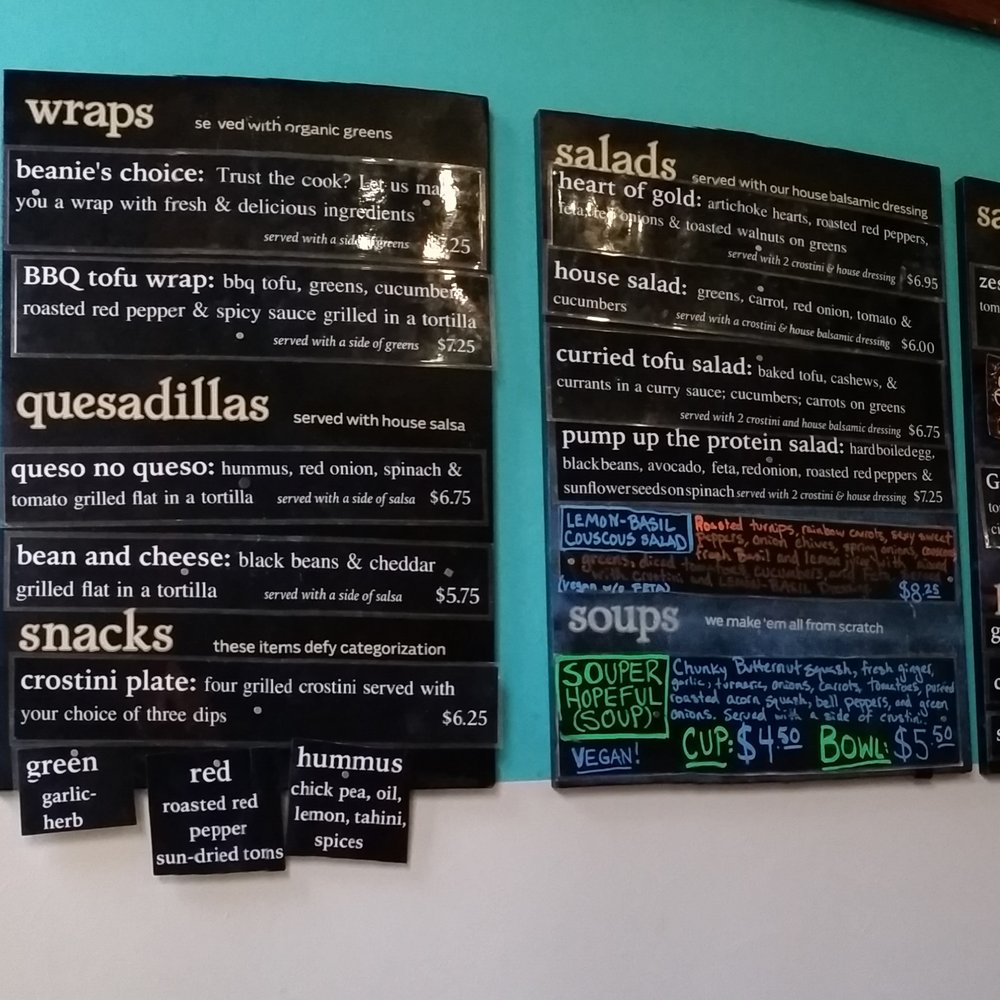 wraps se ved with organic greens
beanie's choice: Trust the cook? Let us ma
you a wrap with fresh & delicious ingredients
served with a side of greens .25
BBQ tofu wrap: bbq tofu, greens, cucumbers,
roasted red pepper & spicy sauce grilled in a tortilla
served with a side of greens $7.25
quesadillas served with house salsa
queso no queso: hummus, red onion, spinach &
tomato grilled flat in a tortilla served with a side of salsa $6.75
bean and cheese: black beans & cheddar
grilled flat in a tortilla served with a side of salsa $5.75
snacks these items defy categorization
crostini plate: four grilled crostini served with
your choice of three dips $6.25
green
garlic-
herb
red
roasted red
pepper
sun-dried toms
hummus
chick pea, oil,
lemon, tahini,
spices
salads served with our house balsamic dressing
heart of gold: artichoke hearts, roasted red peppers,
feta, red onions & toasted walnuts on greens
served with 2 crostini & house dressing $6.95
house salad: greens, carrot, red onion, tomato &
cucumbers served with a crostini & house balsamic dressing $6.00
curried tofu salad: baked tofu, cashews, &
currants in a curry sauce; cucumbers; carrots on greens
served with 2 crostini and house balsamic dressing $6.75
pump up the protein salad: hardboiledegg,
blackbeans, avocado, feta, redonion, roasted redpeppers &
sunflowerseedsonspinach served with 2 crostini & house dressing $7.25
LEMON-BASIL
COUSCOUS SALAD
Roasted turnips, rainbow carrots, sexy sweet
peppers, onion chives, spring onions, couscous
fresh Basil and lemon with mixed
greens, diced tomatoes cucumbers,
crostini and LEMON BASIL
(vegan w/o FETA) $8.25
soups we make 'em all from scratch
SOUPER
HOPEFUL
(SOUP)
Chunky Butternut squash, fresh ginger,
garlic, turmeric, onions, carrots, tomatoes, pureed
roasted acorn squash, bell peppers, and green
onions. Served with a side of crustini.
VEGAN! CUP: $4.50 BOWL: $5.50
sa
zes
tom
G
to
g